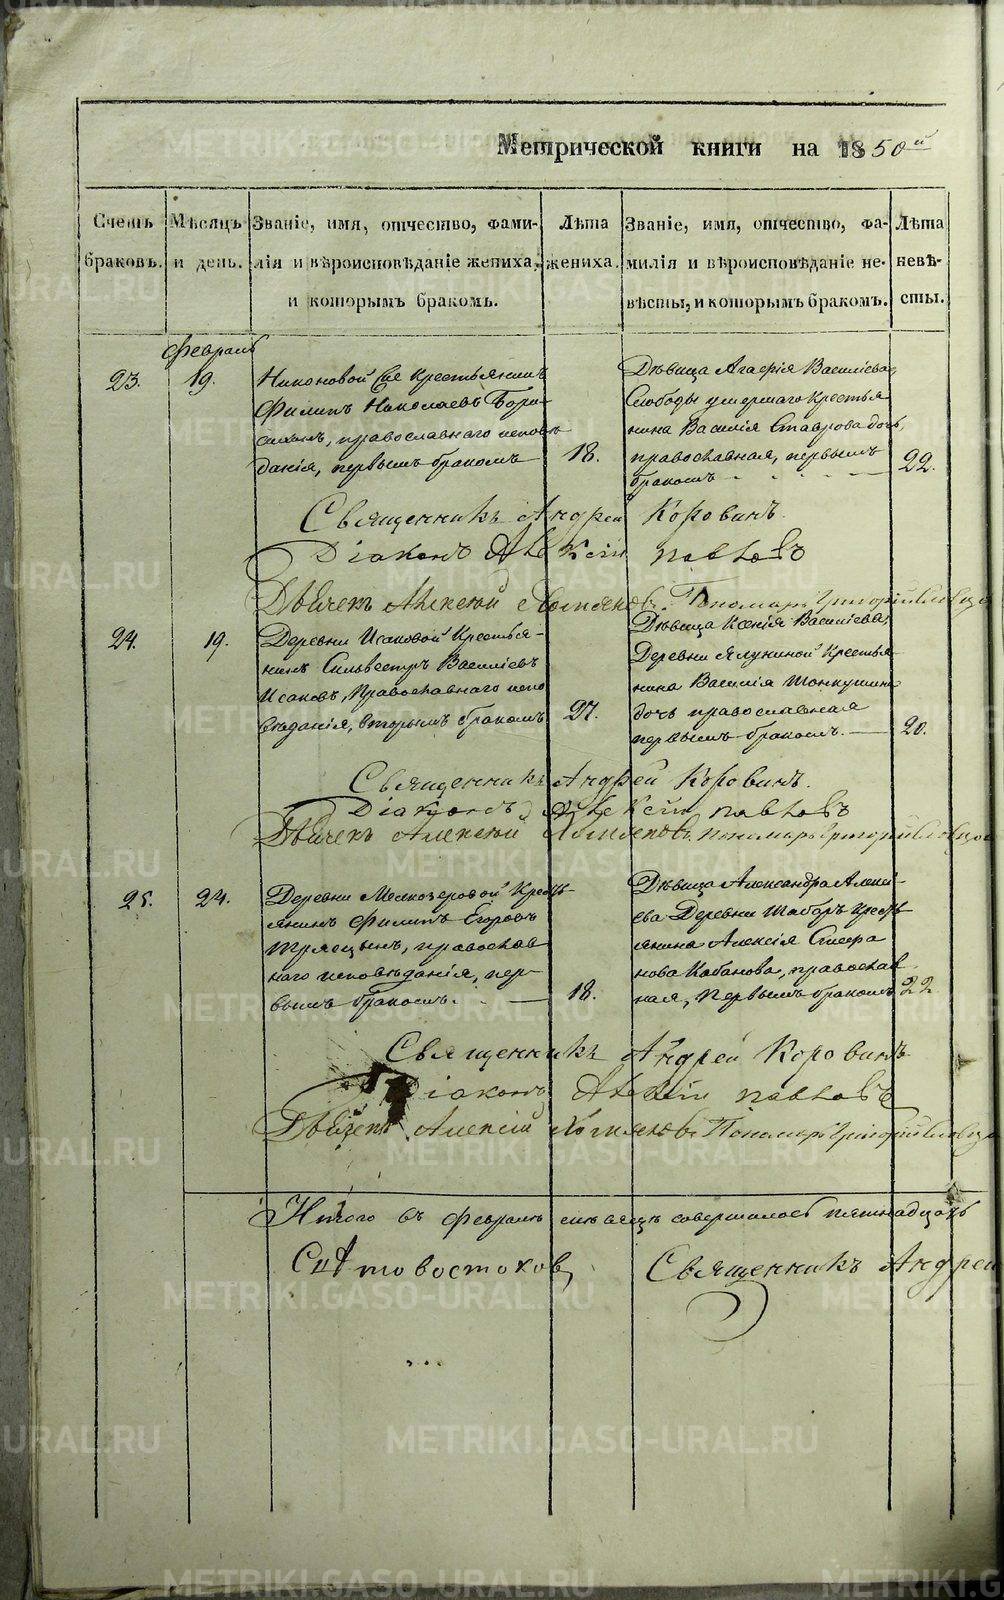 Метрической книги на 1850й
Счетъ браковъ.
Мѣсяцъ и день.
Званіе, имя, отчество, фами-
лія и вѣроисповѣданіе жениха,
и которымъ бракомъ.
Лѣта жениха.
Званіе, имя, отчество, фа-
милія и вѣроисповѣданіе не-
вѣсты, и которымъ бракомъ.
Лѣта невѣ-
сты.
Февраль
23.
19.
Никоновой крестьянинъ
Филипъ Николаевъ
православнаго исповѣ
данія, первымъ бракомъ
18.
Дѣвица Агафія Васильева,
Слободы умершаго Крестья
нина Василія Ставрова дочь,
православная, первымъ
бракомъ
22.
Священникъ Андрей Коровинъ.
Діаконъ Алексій Павловъ
Дьячекъ Алексій Хомяковъ. Пономарь Григорій
24.
19.
Деревни Исаковой Крестья-
нинъ Сильвестръ Василіевъ
Исаковъ, Православнаго испо
вѣданія, вторымъ бракомъ
27.
Дѣвица Ксенія Васильева,
Деревни Ялуниной Крестья
нина Василія
дочь православная
первымъ бракомъ.
20.
Священникъ Андрей Коровинъ.
Діаконъ Алексій Павловъ
Дьячекъ Алексій Хомяковъ, пономарь Григорій
25.
24.
Деревни Крестъ-
янинъ Филипъ Егоровъ
Трясцынъ, православ
наго исповѣданія, пер-
вымъ бракомъ.
18.
Дѣвица Александра Алексі-
ева Деревни Таборъ Крестъ
янина Алексія Стефа
нова Кабанова, православ
ная, Первымъ бракомъ
22
Священникъ Андрей Коровинъ
Діаконъ Алексій Павловъ
Дьячекъ Алексій Хомяковъ Пономарь Григорій
Итого въ Февралѣ мѣсяцѣ совершилось пятнадцать
Священникъ Андрей
METRIKI.GASO-URAL.RU